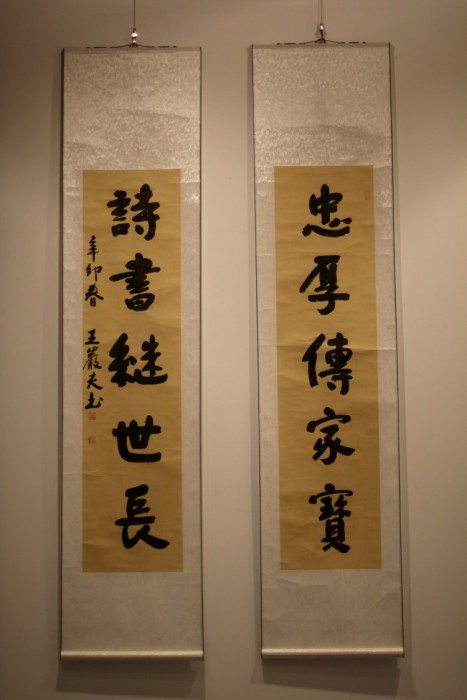 忠厚傳家寶
詩書繼世長
辛卯春 王嚴夫书